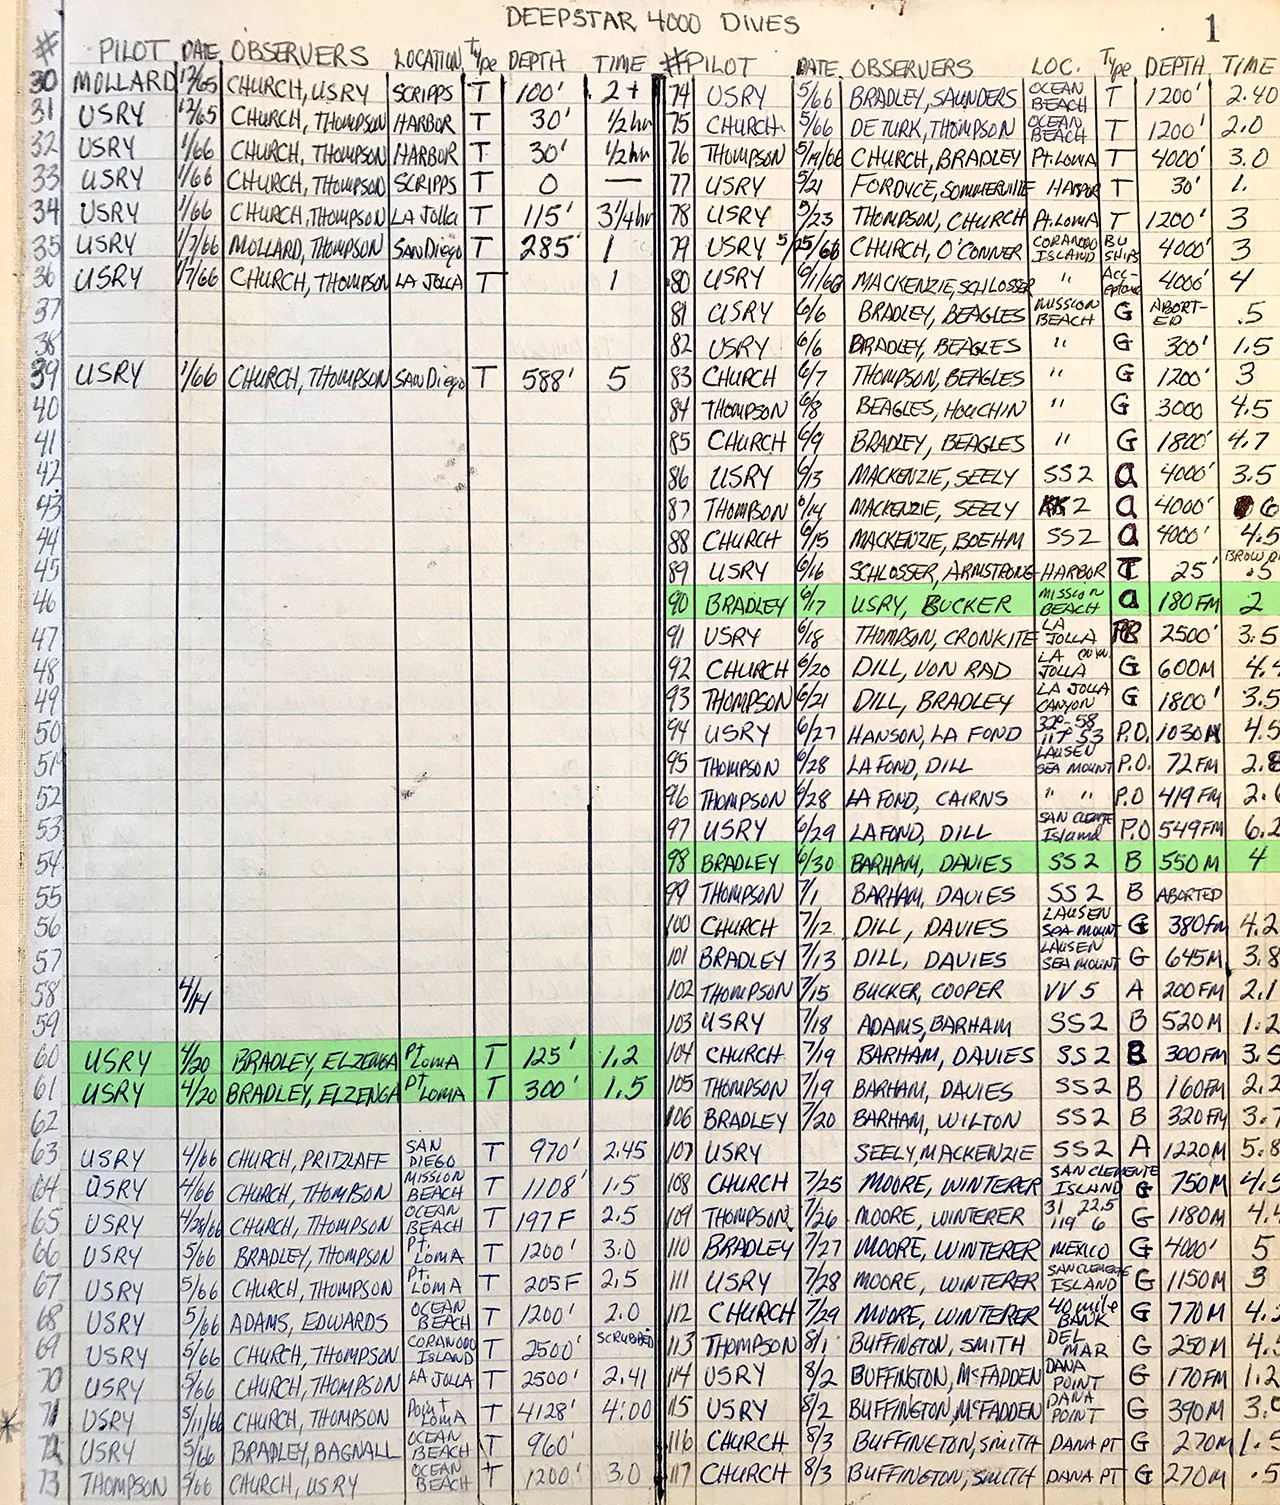 DEEPSTAR 4000 DIVES 1
# PILOT DATE OBSERVERS LOCATION Type DEPTH TIME
30 MOLLARD 12/65 CHURCH, USRY SCRIPPS T 100' 2+
31 USRY 12/65 CHURCH, THOMPSON HARBOR T 30' 1/2 hr
32 USRY 1/66 CHURCH, THOMPSON HARBOR T 30' 1/2 hr
33 USRY 1/66 CHURCH, THOMPSON SCRIPPS T 0 —
34 USRY 1/66 CHURCH, THOMPSON LA Jolla T 115' 3 1/4 hr
35 USRY 1/7/66 MOLLARD, THOMPSON San Diego T 285' 1
36 USRY 1/7/66 CHURCH, THOMPSON LA JOLLA T 1
37
38
39 USRY 1/66 CHURCH, THOMPSON SAN Diego T 588' 5
40
41
42
43
44
45
46
47
48
49
50
51
52
53
54
55
56
57
58 4/14
59
60 USRY 4/20 BRADLEY, ELZENGA Pt. LOMA T 125' 1.2
61 USRY 4/20 BRADLEY, ELZENGA Pt. LOMA T 300' 1.5
62
63 USRY 4/66 CHURCH, PRITZLAFF SAN DIEGO T 970' 2.45
64 USRY 4/66 CHURCH, THOMPSON MISSION BEACH T 1108' 1.5
65 USRY 4/28/66 CHURCH, THOMPSON OCEAN BEACH T 197 F 2.5
66 USRY 5/66 BRADLEY, THOMPSON Pt. LOMA T 1200' 3.0
67 USRY 5/66 CHURCH, THOMPSON Pt. LOMA T 205 F 2.5
68 USRY 5/66 ADAMS, EDWARDS OCEAN BEACH T 1200' 2.0
69 USRY 5/66 CHURCH, THOMPSON CORANODO ISLAND T 2500' SCRUBBED
70 USRY 5/66 CHURCH, THOMPSON LA JOLLA T 2500' 2.41
* 71 USRY 5/11/66 CHURCH, THOMPSON Point LOMA T 4128' 4:00
72 USRY 5/66 BRADLEY, BAGNALL OCEAN BEACH T 960'
73 THOMPSON 5/66 CHURCH, USRY OCEAN BEACH T 1200' 3.0
# PILOT DATE OBSERVERS LOC. Type DEPTH TIME
74 USRY 5/66 BRADLEY, SAUNDERS OCEAN BEACH T 1200' 2.40
75 CHURCH 5/66 DETURK, THOMPSON OCEAN BEACH T 1200' 2.0
76 THOMPSON 5/19/66 CHURCH, BRADLEY Pt. LOMA T 4000' 3.0
77 USRY 5/21 FORDYCE, SOMMERVILLE HARBOR T 30' 1.
78 USRY 5/23 THOMPSON, CHURCH Pt. LOMA T 1200' 3
79 USRY 5/25/66 CHURCH, O'CONNER CORANODO ISLAND BU SHIPS 4000' 3
80 USRY 6/1/66 MACKENZIE, SCHLOSSER " Acceptance 4000' 4
81 USRY 6/6 BRADLEY, BEAGLES MISSION BEACH G ABORT-ED .5
82 USRY 6/6 BRADLEY, BEAGLES " G 300' 1.5
83 CHURCH 6/7 THOMPSON, BEAGLES " G 1200' 3
84 THOMPSON 6/8 BEAGLES, HOUCHIN " G 3000 4.5
85 CHURCH 6/9 BRADLEY, BEAGLES " G 1800' 4.7
86 USRY 6/13 MACKENZIE, SEELY SS 2 a 4000' 3.5
87 THOMPSON 6/14 MACKENZIE, SEELY 2 a 4000' 6
88 CHURCH 6/15 MACKENZIE, BOEHM SS 2 a 4000' 4.5
89 USRY 6/16 SCHLOSSER, ARMSTRONG HARBOR T 25' .5
90 BRADLEY 6/17 USRY, BUCKER MISSION BEACH a 180 FM 2
91 USRY 6/18 THOMPSON, CRONKITE LA JOLLA PR 2500' 3.5
92 CHURCH 6/20 DILL, VON RAD LA JOLLA G 600M 4.4
93 THOMPSON 6/21 DILL, BRADLEY LA JOLLA CANYON G 1800' 3.5
94 USRY 6/27 HANSON, LA FOND 32°-58 117° 53 P.O. 1030 M 4.5
95 THOMPSON 6/28 LA FOND, DILL LAUSEN SEA MOUNT P.O. 72 FM 2.8
96 THOMPSON 6/28 LA FOND, CAIRNS " " P.O 419 FM 2.
97 USRY 6/29 LAFOND, DILL SAN CLEMTE Island P.O 549 FM 6.2
98 BRADLEY 6/30 BARHAM, DAVIES SS 2 B 550 M 4
99 THOMPSON 7/1 BARHAM, DAVIES SS 2 B ABORTED
100 CHURCH 7/12 DILL, DAVIES LAUSEN SEA MOUNT G 380 Fm 4.2
101 BRADLEY 7/13 DILL, DAVIES LAUSEN SEA MOUNT G 645 M 3.8
102 THOMPSON 7/15 BUCKER, COOPER VV 5 A 200 FM 2.1
103 USRY 7/18 ADAMS, BARHAM SS 2 B 520 M 1.2
104 CHURCH 7/19 BARHAM, DAVIES SS 2 B 300 FM 3.5
105 THOMPSON 7/19 BARHAM, DAVIES SS 2 B 160 FM 2.2
106 BRADLEY 7/20 BARHAM, WILTON SS 2 B 320 FM 3.7
107 USRY SEELY, MACKENZIE SS 2 A 1220 M 5.8
108 CHURCH 7/25 MOORE, WINTERER SAN CLEMENTE ISLAND G 750 M 4.5
109 THOMPSON 7/26 MOORE, WINTERER 31 22.5 119 6 G 1180 M 4.4
110 BRADLEY 7/27 MOORE, WINTERER MEXICO G 4000' 5
111 USRY 7/28 MOORE, WINTERER SAN CLEMENTE ISLAND G 1150 M 3
112 CHURCH 7/29 MOORE, WINTERER 40 mile BANK G 770 M 4.
113 THOMPSON 8/1 BUFFINGTON, SMITH DEL MAR G 250 M 4.5
114 USRY 8/2 BUFFINGTON, McFADDEN DANA POINT G 170 FM 1.2
115 USRY 8/2 BUFFINGTON, McFADDEN DANA POINT G 390 M 3.0
116 CHURCH 8/3 BUFFINGTON, SMITH DANA PT G 270 M 1.5
117 CHURCH 8/3 BUFFINGTON, SMITH DANA PT G 270 M .5